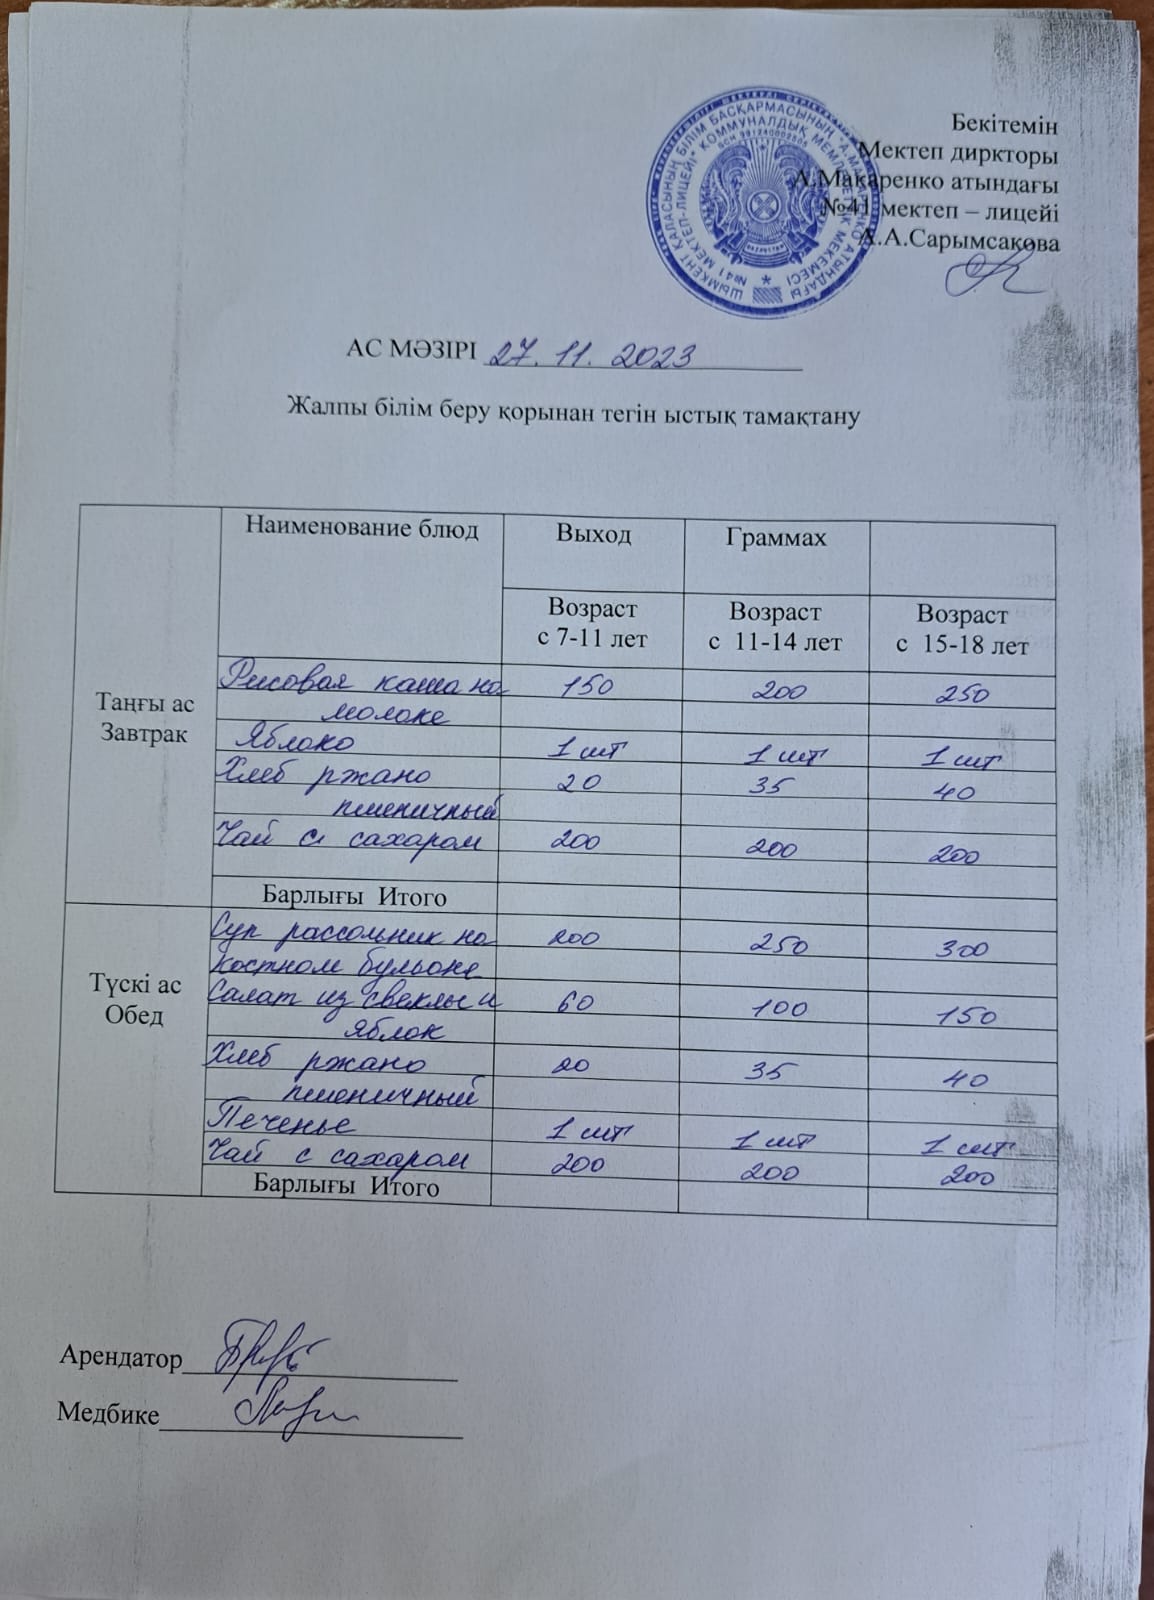 Бекітемін
Мектеп диркторы
А.Макаренко атындағы
№41 мектеп – лицейі
А.А.Сарымсақова
ШЫМКЕНТ ҚАЛАСЫНЫҢ БІЛІМ БАСҚАРМАСЫНЫҢ "А.МАКАРЕНКО АТЫНДАҒЫ
№41 МЕКТЕП-ЛИЦЕЙІ" КОММУНАЛДЫҚ МЕМЛЕКЕТТІК МЕКЕМЕСІ
АС МӘЗІРІ 27. 11. 2023
Жалпы білім беру қорынан тегін ыстық тамақтану
Наименование блюд Выход Граммах
Возраст Возраст Возраст
с 7-11 лет с 11-14 лет с 15-18 лет
Таңғы ас
Завтрак
Рисовая каша на 150 200 250
молоке
Яблоко 1 шт 1 шт 1 шт
Хлеб ржано 20 35 40
пшеничный
Чай с сахаром 200 200 200
Барлығы Итого
Түскі ас
Обед
Суп рассольник на 200 250 300
костном бульоне
Салат из свеклы и 60 100 150
яблок
Хлеб ржано 20 35 40
пшеничный
Печенье 1 шт 1 шт 1 шт
Чай с сахаром 200 200 200
Барлығы Итого
Арендатор
Медбике